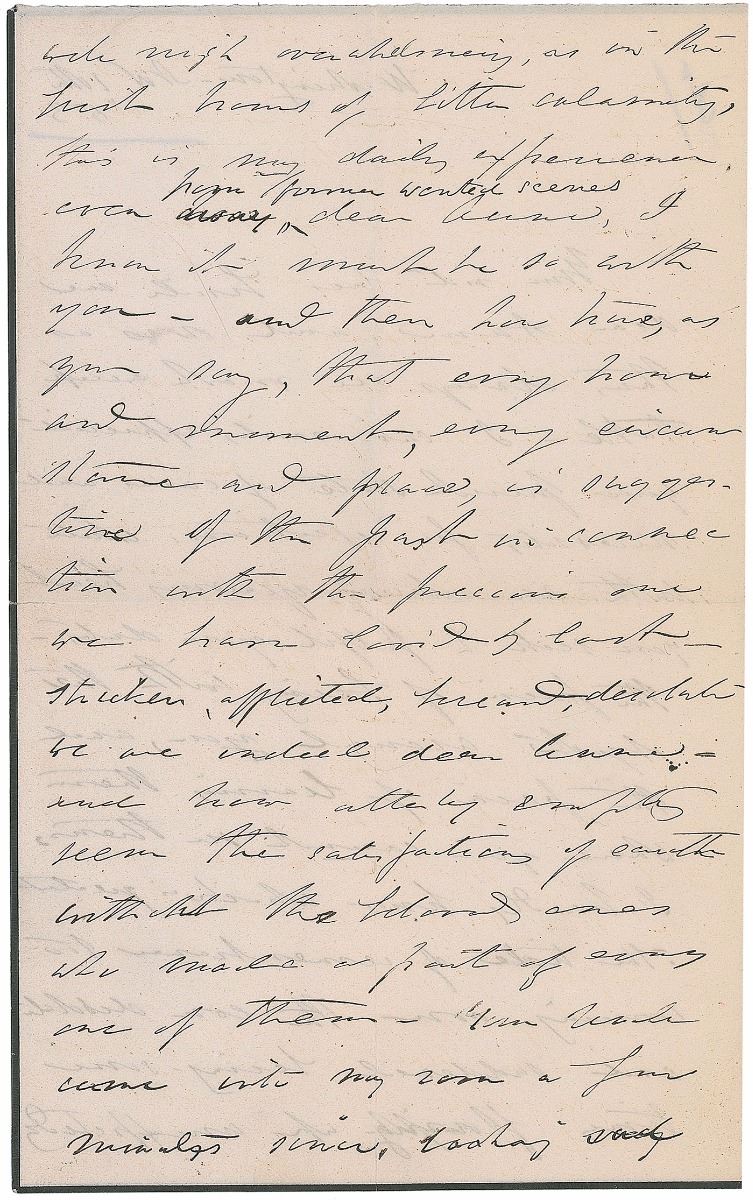 well nigh overwhelming, as in the
first hours of bitter calamity,
this is my daily experience,
from former wonted scenes
even away, dear Annie, I
know it must be so with
you - and then how true, as
you say, that every hour
and moment, every circum
stance and place, is sugges-
tive of the past in connec
tion with the precious one
we have loved & lost -
stricken, afflicted, bereaved, desolate
we are indeed dear Annie -
and how utterly empty
seem the satisfactions of earth
without the beloved ones
who made a part of every
one of them - Your Uncle
came into my room a few
minutes since, looking sad